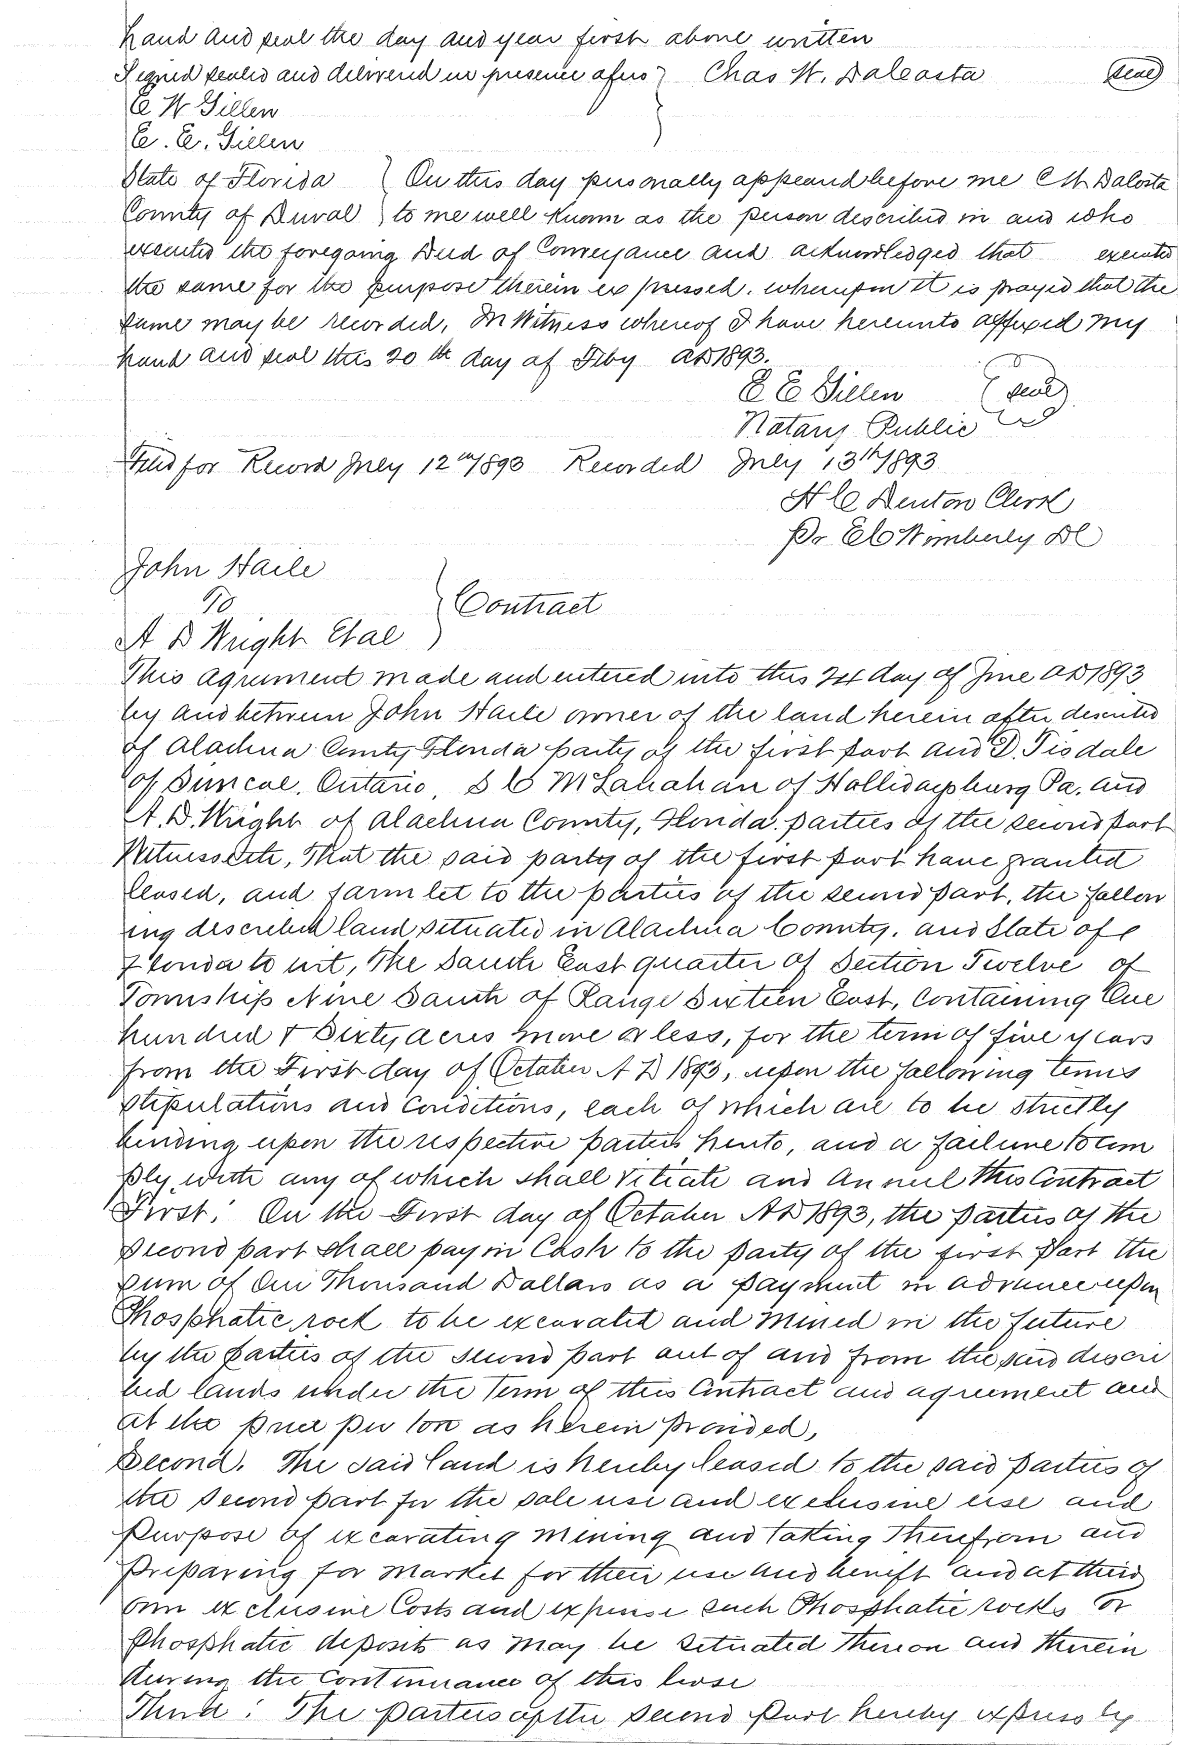 hand and seal the day and year first above written
Signed sealed and delivered in presence of us } Chas W. DaCosta (seal)
E W Gillen
E. E. Gillen
State of Florida } On this day personally appeared before me C W DaCosta
County of Duval } to me well known as the person described in and who
executed the foregoing Deed of Conveyance and acknowledged that executed
the same for the purpose therein expressed. whereupon it is prayed that the
same may be recorded, In Witness whereof I have hereunto affixed my
hand and seal this 20th day of Feby AD 1893.
E E Gillen (seal)
Notary Public
Filed for Record July 12th/893 Recorded July 13th/893
H C Denton Clerk
Pr E C Wimberly DC
John Haile
To } Contract
A D Wright Etal
This agreement made and entered into this 24 day of June AD 1893
by and between John Haile owner of the land herein after described
of Alachua County Florida party of the first part and D. Tisdale
of Simcoe, Ontario, S C McLanahan of Hollidaysburg Pa. and
A. D. Wright of Alachua County, Florida. parties of the second part
Witnesseth, That the said party of the first part have granted
leased, and farm let to the parties of the second part, the follow
ing described land situated in Alachua County. and State of
Florida to wit, The South East quarter of Section Twelve of
Township Nine South of Range Sixteen East, Containing One
hundred & Sixty acres more or less, for the term of five years
from the First day of October A D 1893, upon the following terms
stipulations and Conditions, each of which are to be strictly
binding upon the respective parties hereto, and a failure to com
ply with any of which shall vitiate and Annul this Contract
First: On the First day of October AD 1893, the parties of the
second part shall pay in Cash to the party of the first part the
sum of One Thousand Dollars as a payment in advance upon
Phosphatic rock to be excavated and Mined in the future
by the parties of the second part out of and from the said descri
bed lands under the Term of this Contract and agreement and
at the price per ton as herein provided,
Second. The said land is hereby leased to the said parties of
the second part for the sole use and exclusive use and
purpose of excavating Mining and taking therefrom and
preparing for Market for their use and benefit and at their
own exclusive Costs and expense such Phosphatic rocks or
phosphatic deposits as may be situated thereon and therein
during the continuance of this lease
Third: The parties of the second part hereby expressly